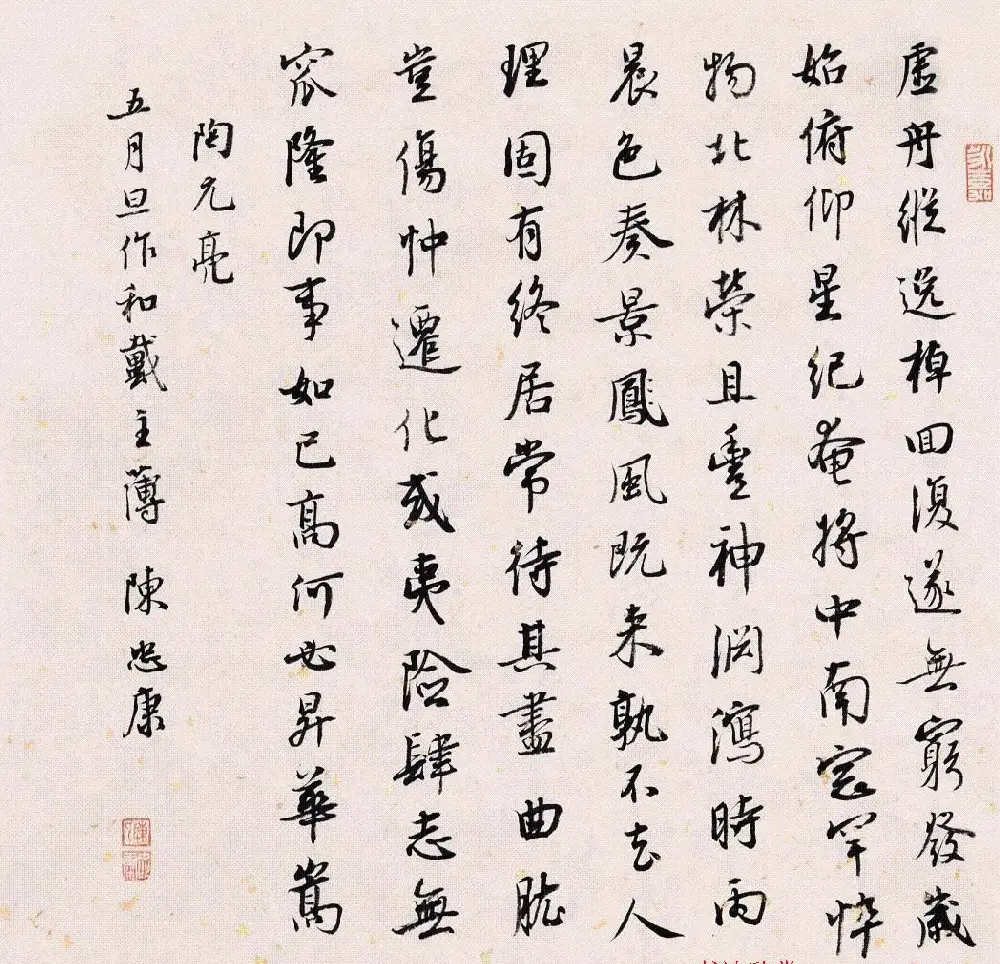 虛舟縱逸棹回復遂無窮發歲
始俯仰星紀奄將中南窓罕悴
物北林榮且豐神淵瀉時雨
晨色奏景鳳風既来孰不去人
理固有終居常待其盡曲肱
豈傷忡遷化或夷險肆志無
窊隆即事如已高何必昇華嵩
陶元亮
五月旦作和戴主簿 陳忠康